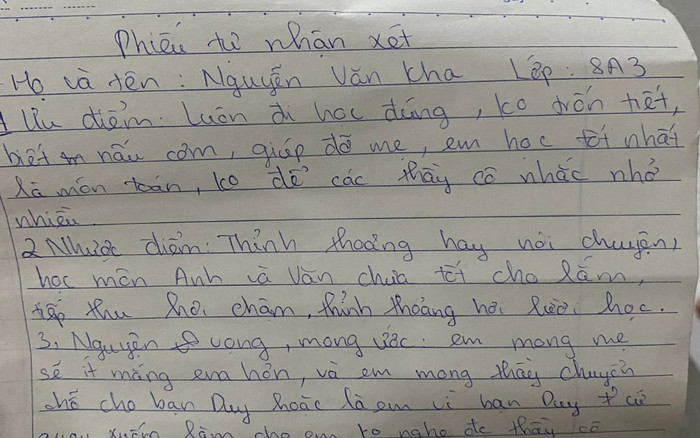 Phiếu tự nhận xét
Họ và tên : Nguyễn Văn Kha Lớp : 8A3
1 Ưu điểm: Luôn đi học đúng, ko trốn tiết,
biết nấu cơm, giúp đỡ mẹ, em học tốt nhất
là môn toán, ko để các thầy cô nhắc nhở
nhiều.
2 Nhược điểm: Thỉnh thoảng hay nói chuyện,
học môn Anh và Văn chưa tốt cho lắm,
tiếp thu hơi chậm, thỉnh thoảng hơi lười học.
3, Nguyện vọng, mong ước: em mong mẹ
sẽ ít mắng em hơn, và em mong thầy chuyển
chỗ cho bạn Duy hoặc là em vì bạn Duy cứ
quay xuống làm cho em ko nghe đc thầy cô